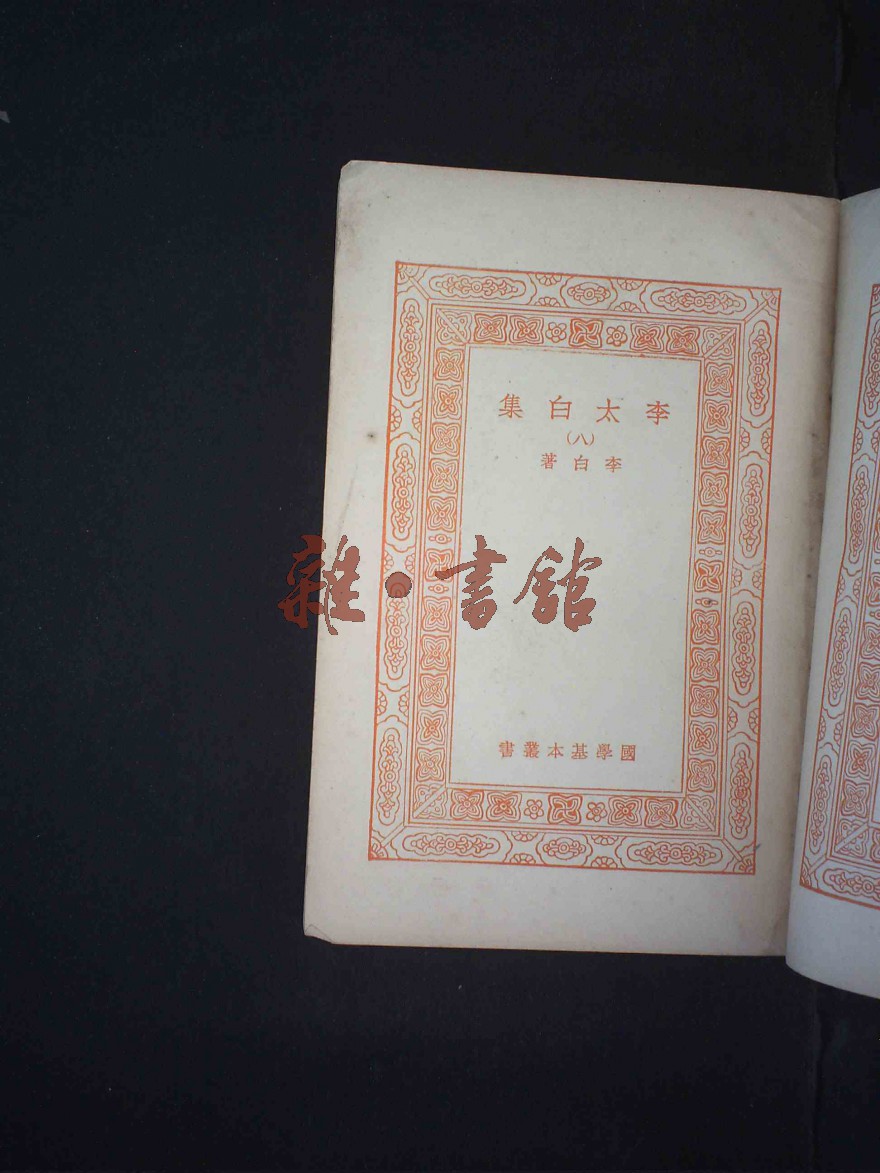 李太白集
(八)
李白著
雜·書館
國學基本叢書